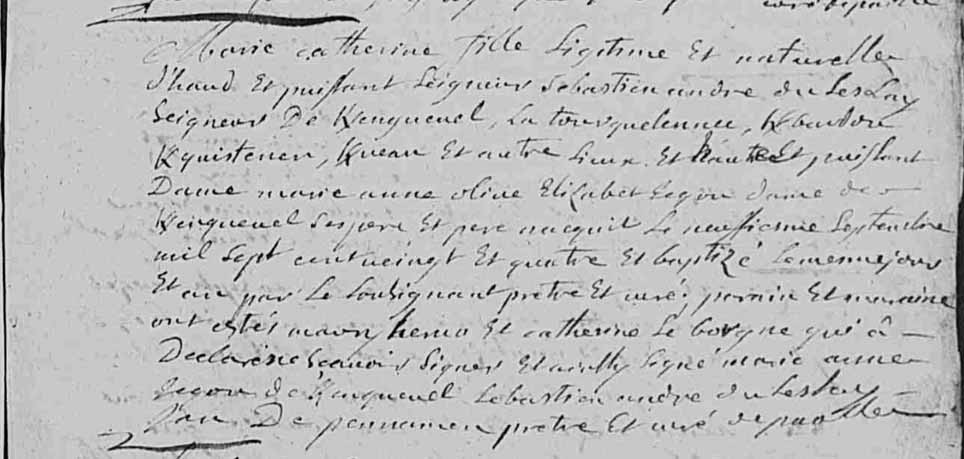 curé de paulle
Marie catherine fille Ligitime Et naturelle
d'haud Et puissant Seigneur Sebastien andre du LesLay
Seigneur De Kerguenel, La tourquelennec, Kbardou
Kguistenen, Kveau Et autre Lieux. Et haute Et puissant
Dame marie anne olive Elizabet Segou dame de
Kenguenel Ses pere Et pere nacquit Le neuffieme Septembre
mil Sept cent veingt Et quatre Et baptizé Le memme jour
Et an par Le Soussignant pretre Et curé. parain Et maraine
ont estés herno Et catherine Le borgne qui â
Declarée Sçauoir Signer Signé marie anne
Segou de Kerguenel Sebastien andre du Leslay
De pennamen pretre Et curé de paulle